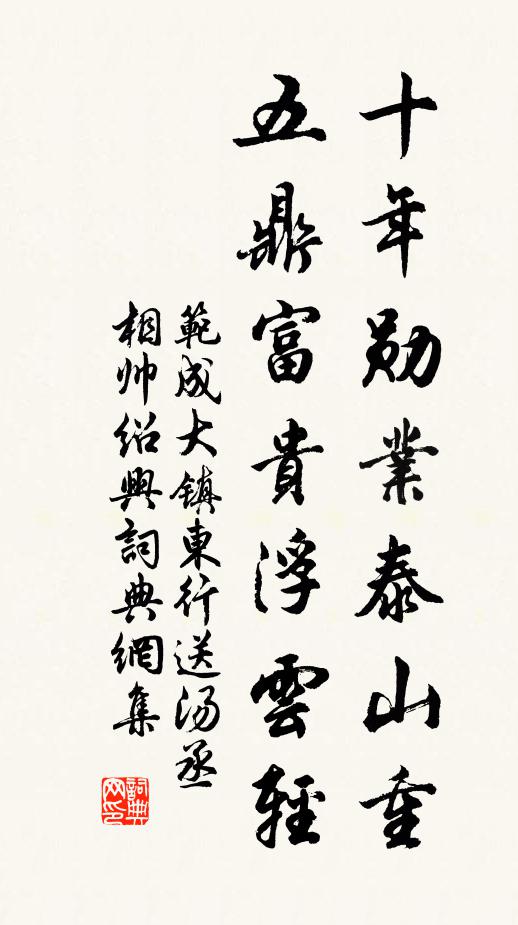 十年勋業泰山重
五鼎富貴浮雲輕
範成大鎮東行送汤丞
相帅绍興詞典網集
詞典
网印